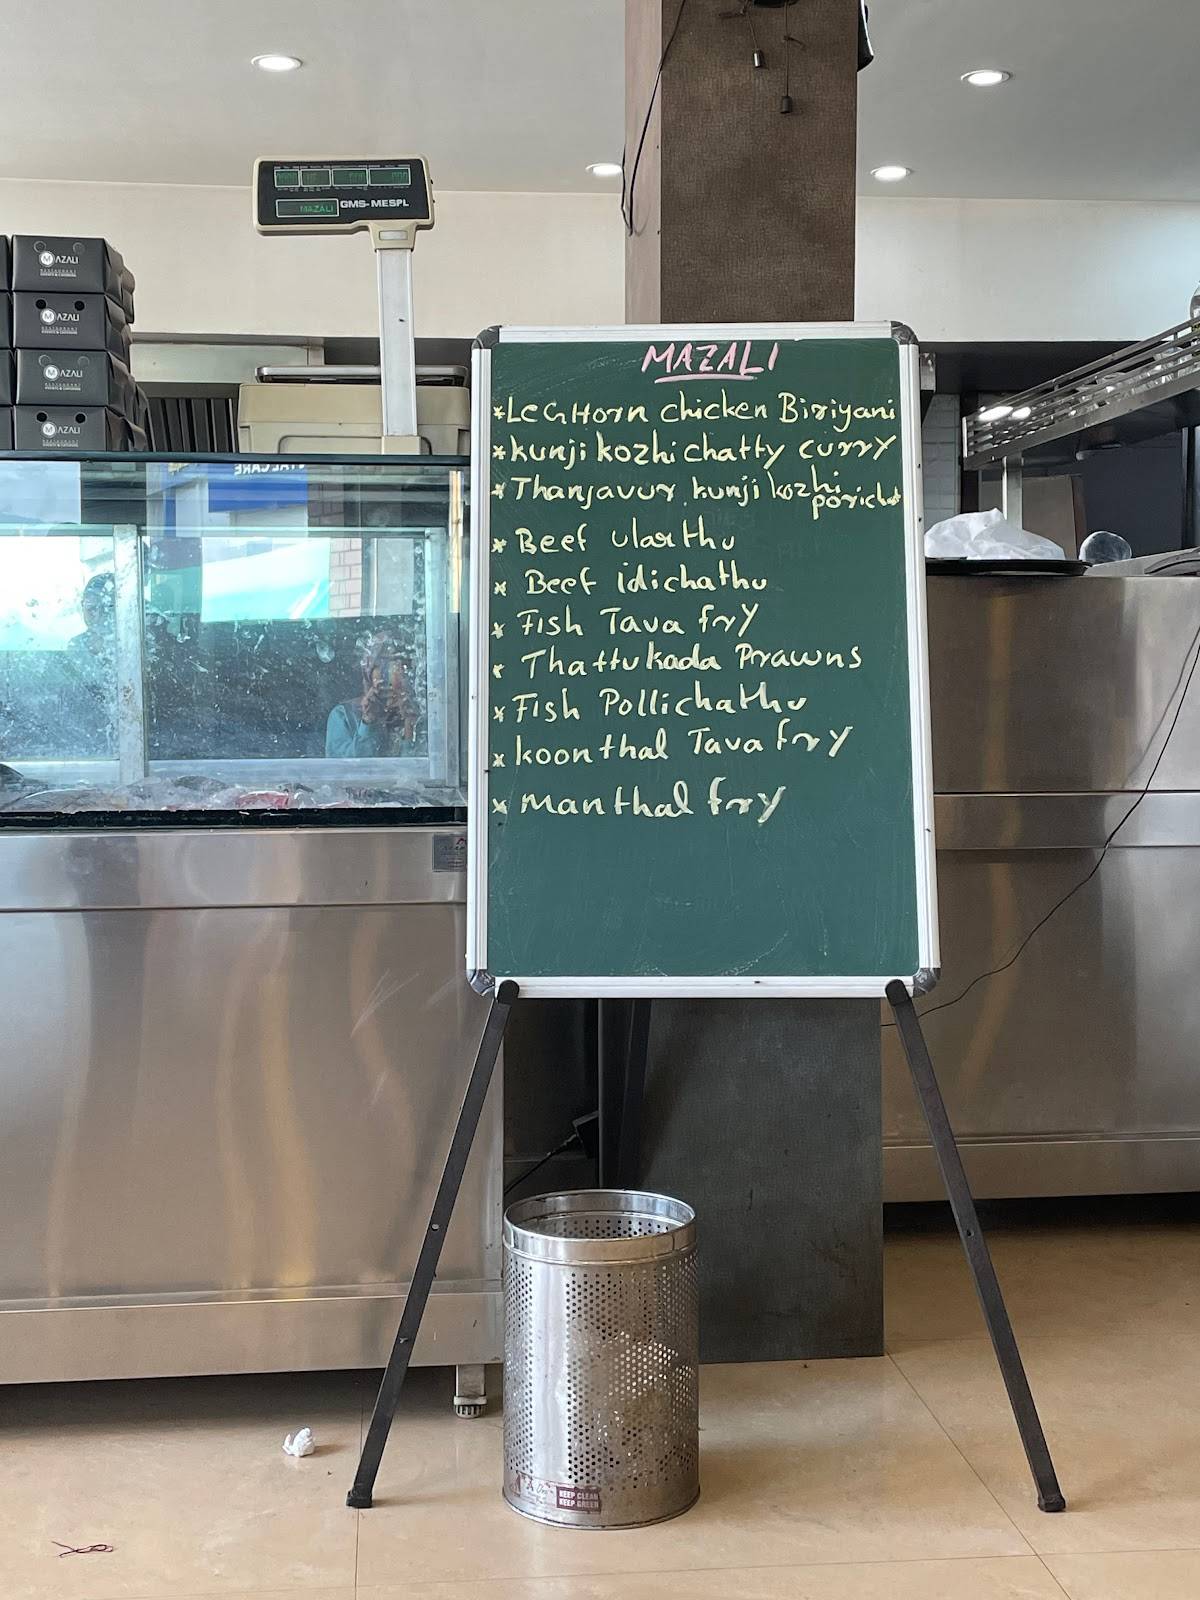 MAZALI GMS-MESPL
M AZALI
RESTAURANT
M AZALI
RESTAURANT
M AZALI
M AZALI
MAZALI
*LegHorn chicken Biriyani
*kunji kozhi chatty curry
*Thanjavur kunji kozhi
porichath
* Beef ularthu
* Beef idichathu
* Fish Tava fry
* Thattukada Prawns
* Fish Pollichathu
* koonthal Tava fry
* manthal fry
KEEP CLEAN
KEEP GREEN